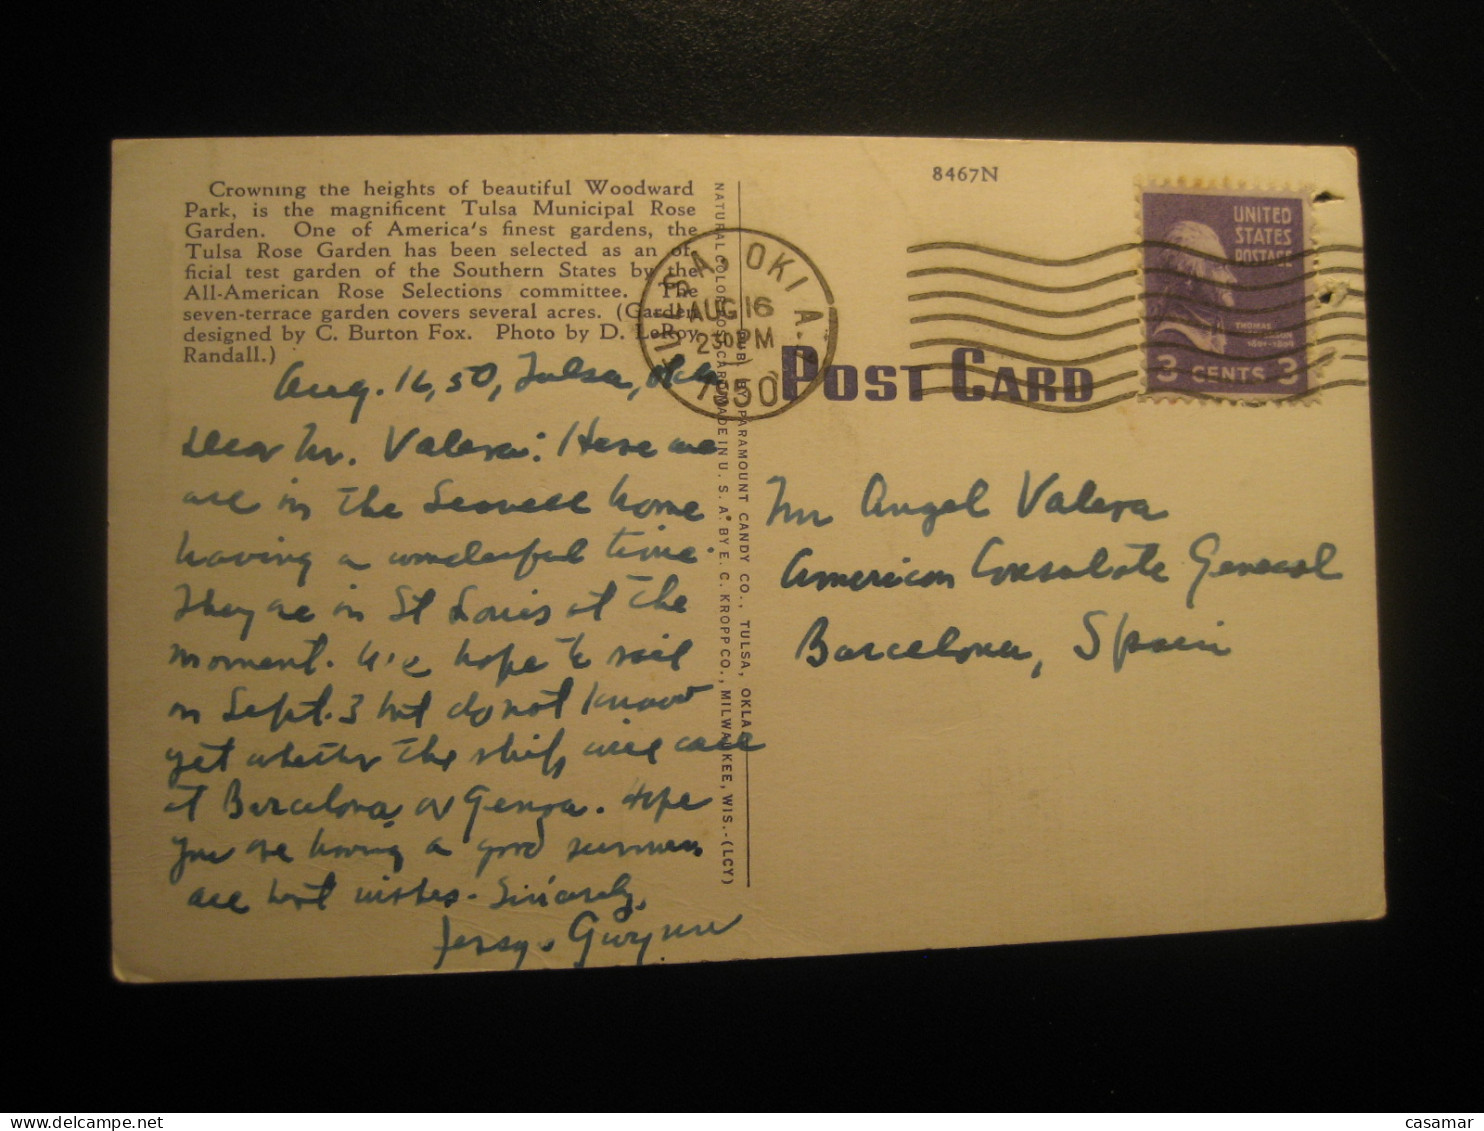 Crowning the heights of beautiful Woodward
Park, is the magnificent Tulsa Municipal Rose
Garden. One of America's finest gardens, the
Tulsa Rose Garden has been selected as an of-
ficial test garden of the Southern States by the
All-American Rose Selections committee. The
seven-terrace garden covers several acres. (Garden
designed by C. Burton Fox. Photo by D. LeRoy
Randall.)
Aug. 16, 50, Tulsa, Okla
Dear Mr. Valera: Here we
are in the home
having a wonderful time.
They are in St Louis at the
moment. We hope to sail
on Sept. 3 but do not know
yet whether the ship will call
at Barcelona or Genoa. Hope
you are having a good summer.
All best wishes. Sincerely,
Gwynn
NATURAL COLOR POST CARD MADE IN U. S. A. BY E. C. KROPP CO., MILWAUKEE, WIS.-(LCY)
PUB. BY PARAMOUNT CANDY CO., TULSA, OKLA.
8467N
TULSA, OKLA.
AUG 16
230 PM
1950
POST CARD
UNITED
STATES
POSTAGE
THOMAS
JEFFERSON
1801-1809
3 CENTS 3
Mr Angel Valera
American Consulate General
Barcelona, Spain
casamar
www.delcampe.net